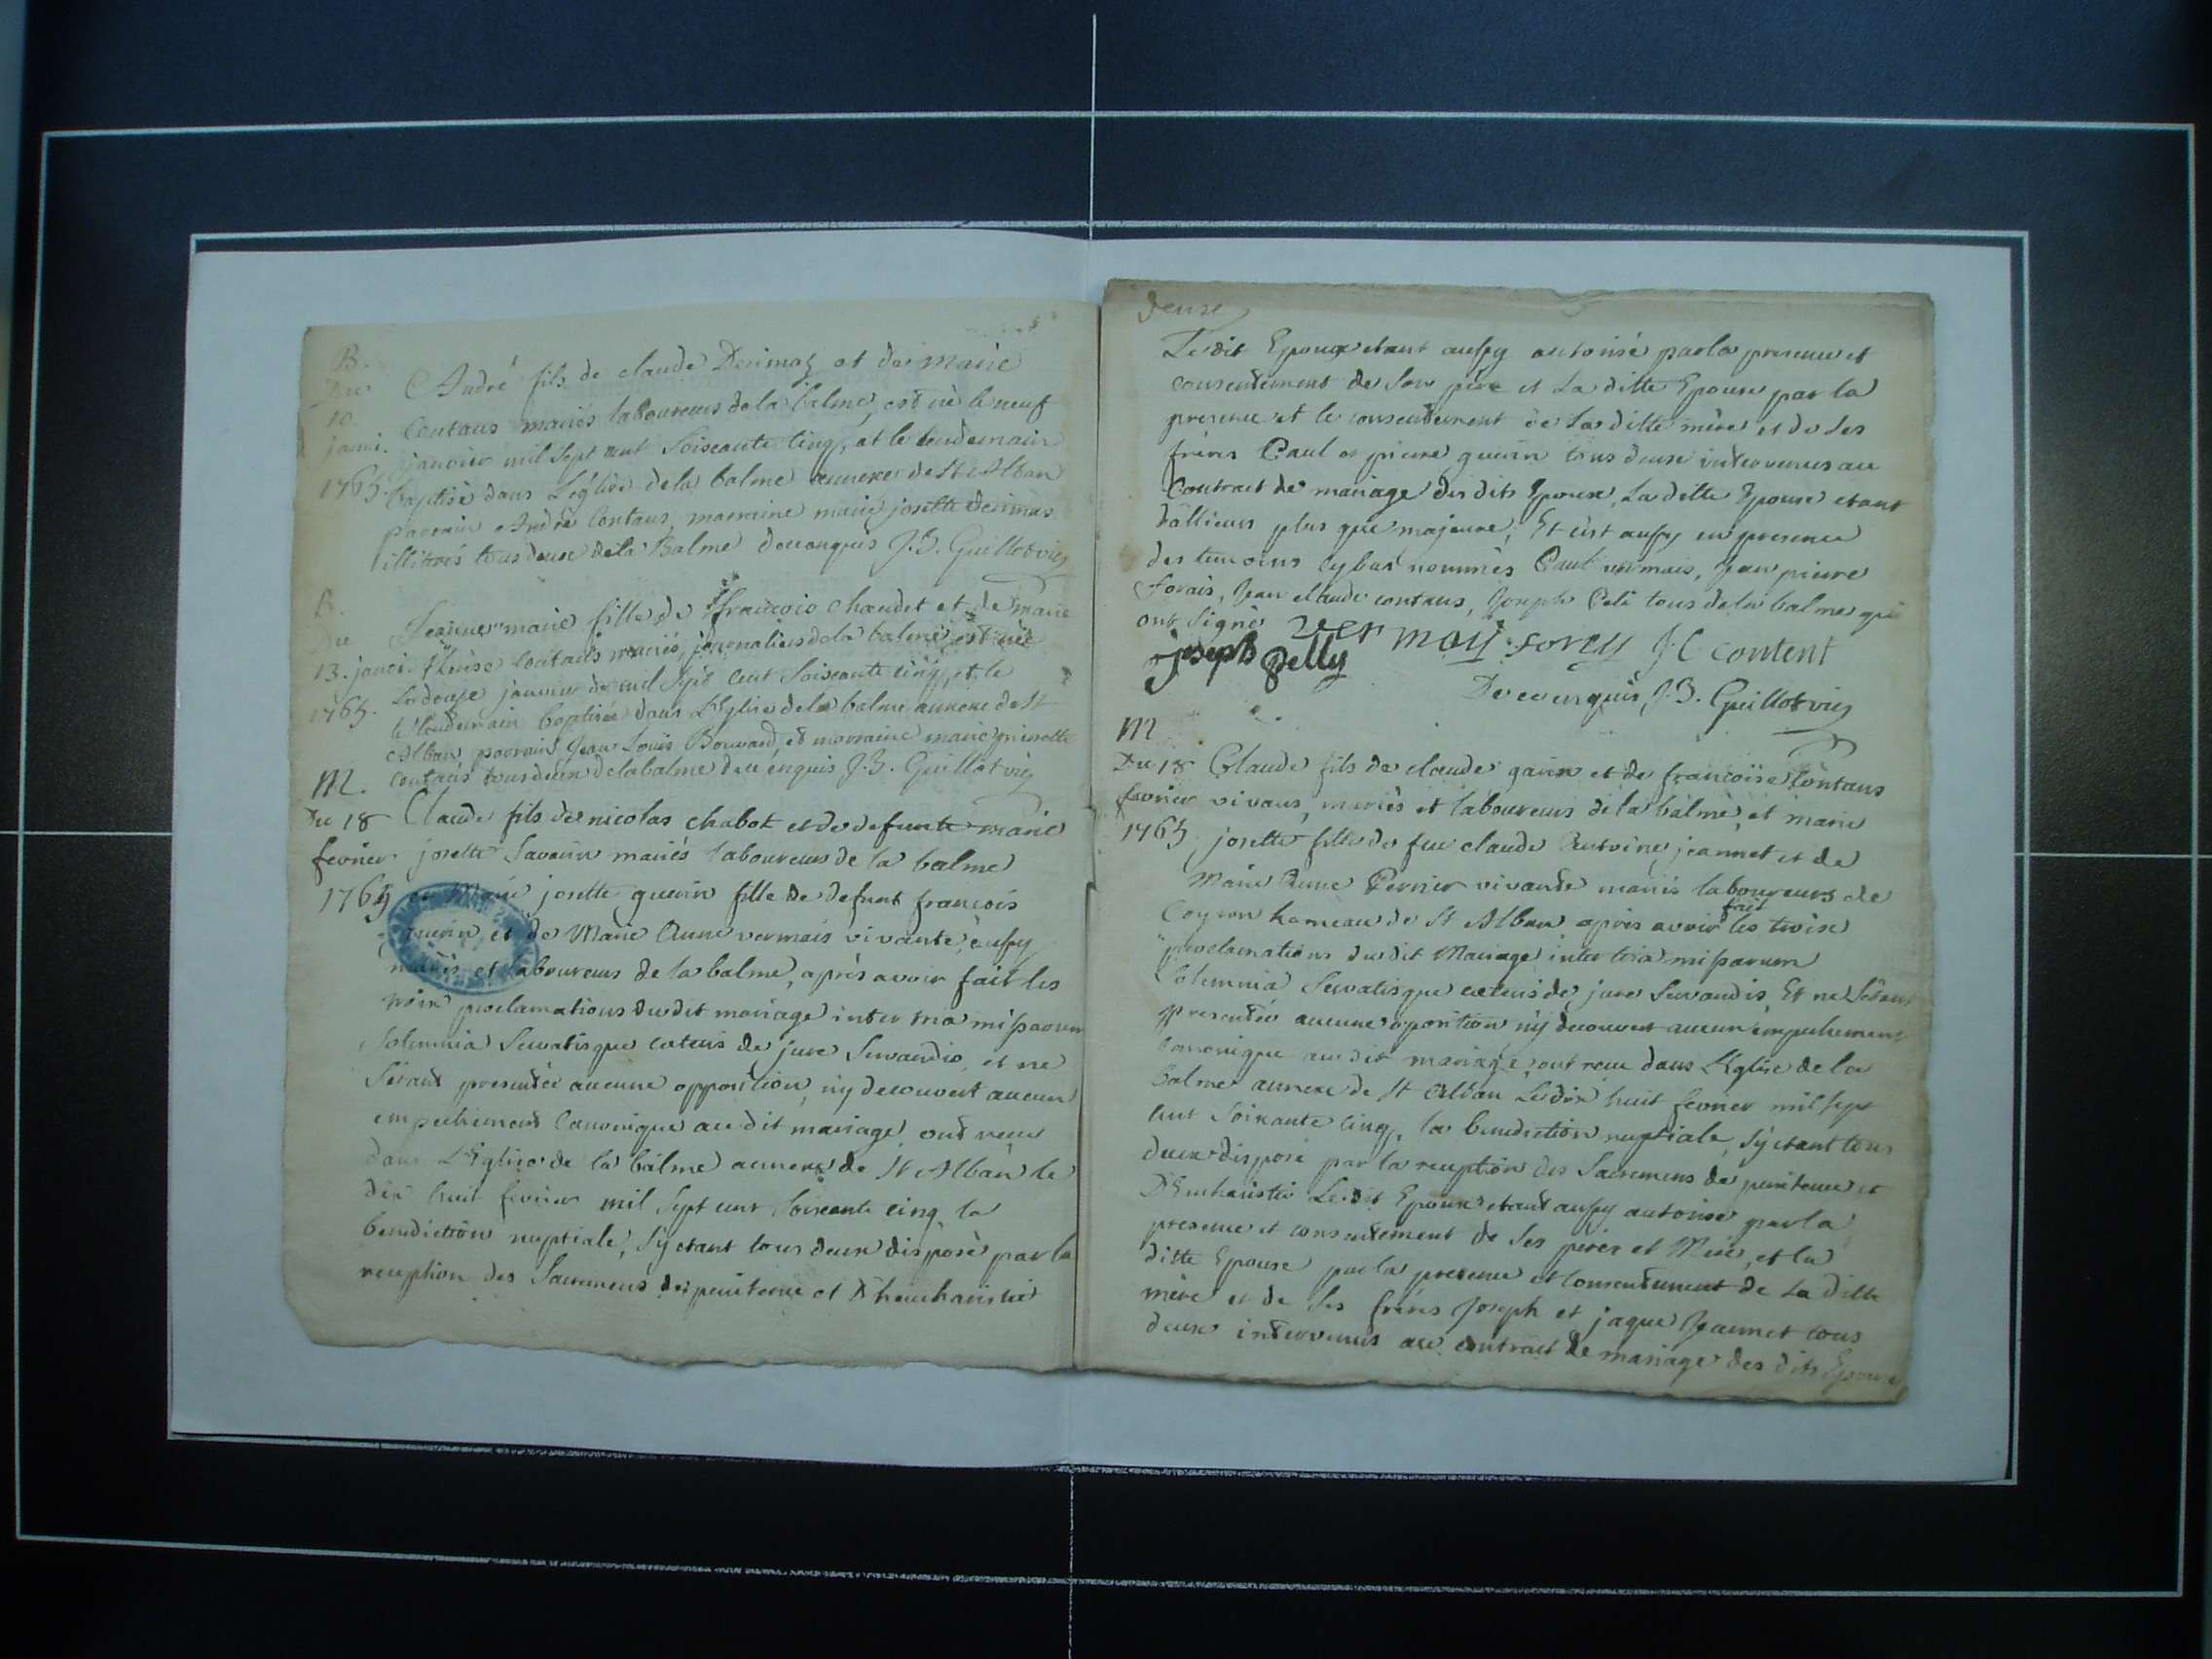 B.
Du
10
janvi.
1765.
André fils de claude Derimaz et de marie
Contaus mariés laboureurs de la balme, est nè le neuf
janvier mil sept cent soiscante cinq, et le lendemain
baptisè dans L'église de la balme annexe de St Alban
parrain André Contaus, marraine marie josette Derimas
illitrés tous deux de la Balme Decenquis J.B. Guillot vic
B.
Du
13. janvi.
1765.
Jeanne marie fille de françois chaudet et de marie
Contaus mariés, journaliers de la balme est née
Le douze janvier de mil sept cent soiscante cinq, et le
le lendemain baptisée dans L'Eglise de la balme annexe de St
Alban, parrain Jean Louis Bouvard, et marraine marie
contaus tous deux de la balme decenquis J.B. Guillot vic
M.
Du 18
fevrier
1765
Claude fils de nicolas chabot et de defunte marie
josette Savarin mariés laboureurs de la balme
et Marie josette guerin fille de defunt francois
guerin, et de Marie Anne vermais vivante, aussy
mariés et laboureurs de la balme, après avoir fait les
trois proclamations du dit mariage inter tria missarum
solemnia servatisque ceteris de jure servandis, et ne
s'étant presentée aucune opposition, ny decouvert aucun
empechement canonique au dit mariage, ont reçu
dans L'Eglise de la bâlme annexe de St Alban le
dix huit fevrier mil sept cent soiscante cinq la
benediction nuptiale, s'y etant tous deux disposè par la
reception des Sacremens de penitence et D'heucharistie
deux
Le dit Epoux etant aussy autorisé par la presence et
consentement de son père et La ditte Epouse par la
presence et le consentement de La ditte mère et de ses
frères Paul et pierre guerin tous deux intervenus au
Contract de mariage des dits Epoux, La ditte Epouse etant
d'allieurs plus que majeure, Et c'est aussy en presence
des temoins cy bas nommés Paul vermais, Jean pierre
forais, Jean claude contaus, Joseph Peli tous de la balme qui
ont signé
vermay forey J C content
joseph pelly
Decenquis, J.B. Guillot vic
M
Du 18
fevrier
1765
Claude fils de claude garin et de françoise Contaus
vivans, mariés et laboureurs de la balme, et marie
josette fille de feu claude Antoine jeannet et de
Marie Anne Perrier vivante mariés laboureurs de
Coyron hameau de St Alban après avoir fait les trois
proclamations du dit Mariage inter tria missarum
solemnia servatisque ceteris de jure servandis, Et ne s'étant
presentée aucune oposition ny decouvert aucun empechement
canonique au dit mariage, ont reçu dans L'Eglise de la
Balme annexe de St Alban Le dix huit fevrier mil sept
cent soixante cinq, la benediction nuptiale, s'y etant tous
deux disposé par la reception des Sacremens de penitence et
D'Eucharistie Le dit Epoux etant aussy autorisé par la
presence et consentement de ses pères et Mère, et la
ditte Epouse par la presence et consentement de La ditte
mère et de ses frères Joseph et jaque Jeannet tous
deux intervenus au contract de mariage des dits Epoux